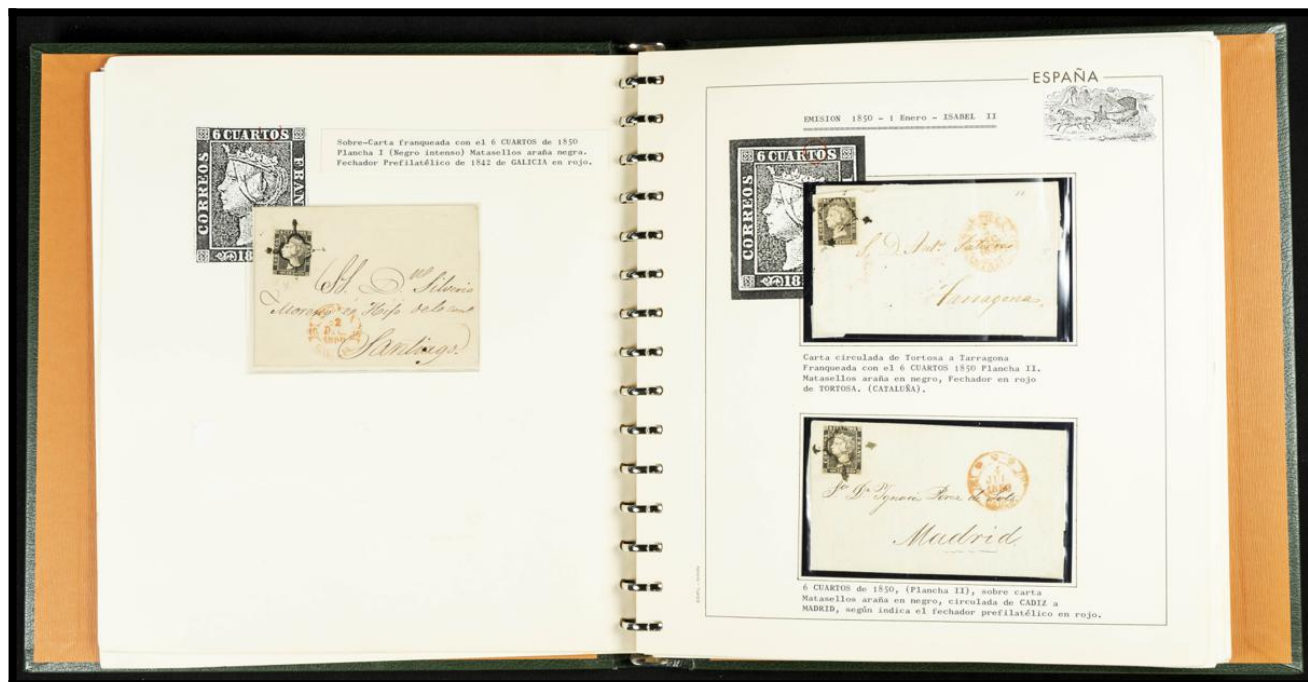 6 CUARTOS
CORREOS
FRAN
18
Sobre-Carta franqueada con el 6 CUARTOS de 1850
Plancha I (Negro intenso) Matasellos araña negra.
Fechador Prefilatélico de 1842 de GALICIA en rojo.
2
1850
Santiago.
ESPAÑA
EMISION 1850 - 1 Enero - ISABEL II
6 CUARTOS
CORREOS
18
Tarragona
Carta circulada de Tortosa a Tarragona
Franqueada con el 6 CUARTOS 1850 Plancha II.
Matasellos araña en negro, Fechador en rojo
de TORTOSA. (CATALUÑA).
JUL
1850
Madrid
6 CUARTOS de 1850, (Plancha II), sobre carta
Matasellos araña en negro, circulada de CADIZ a
MADRID, según indica el fechador prefilatélico en rojo.